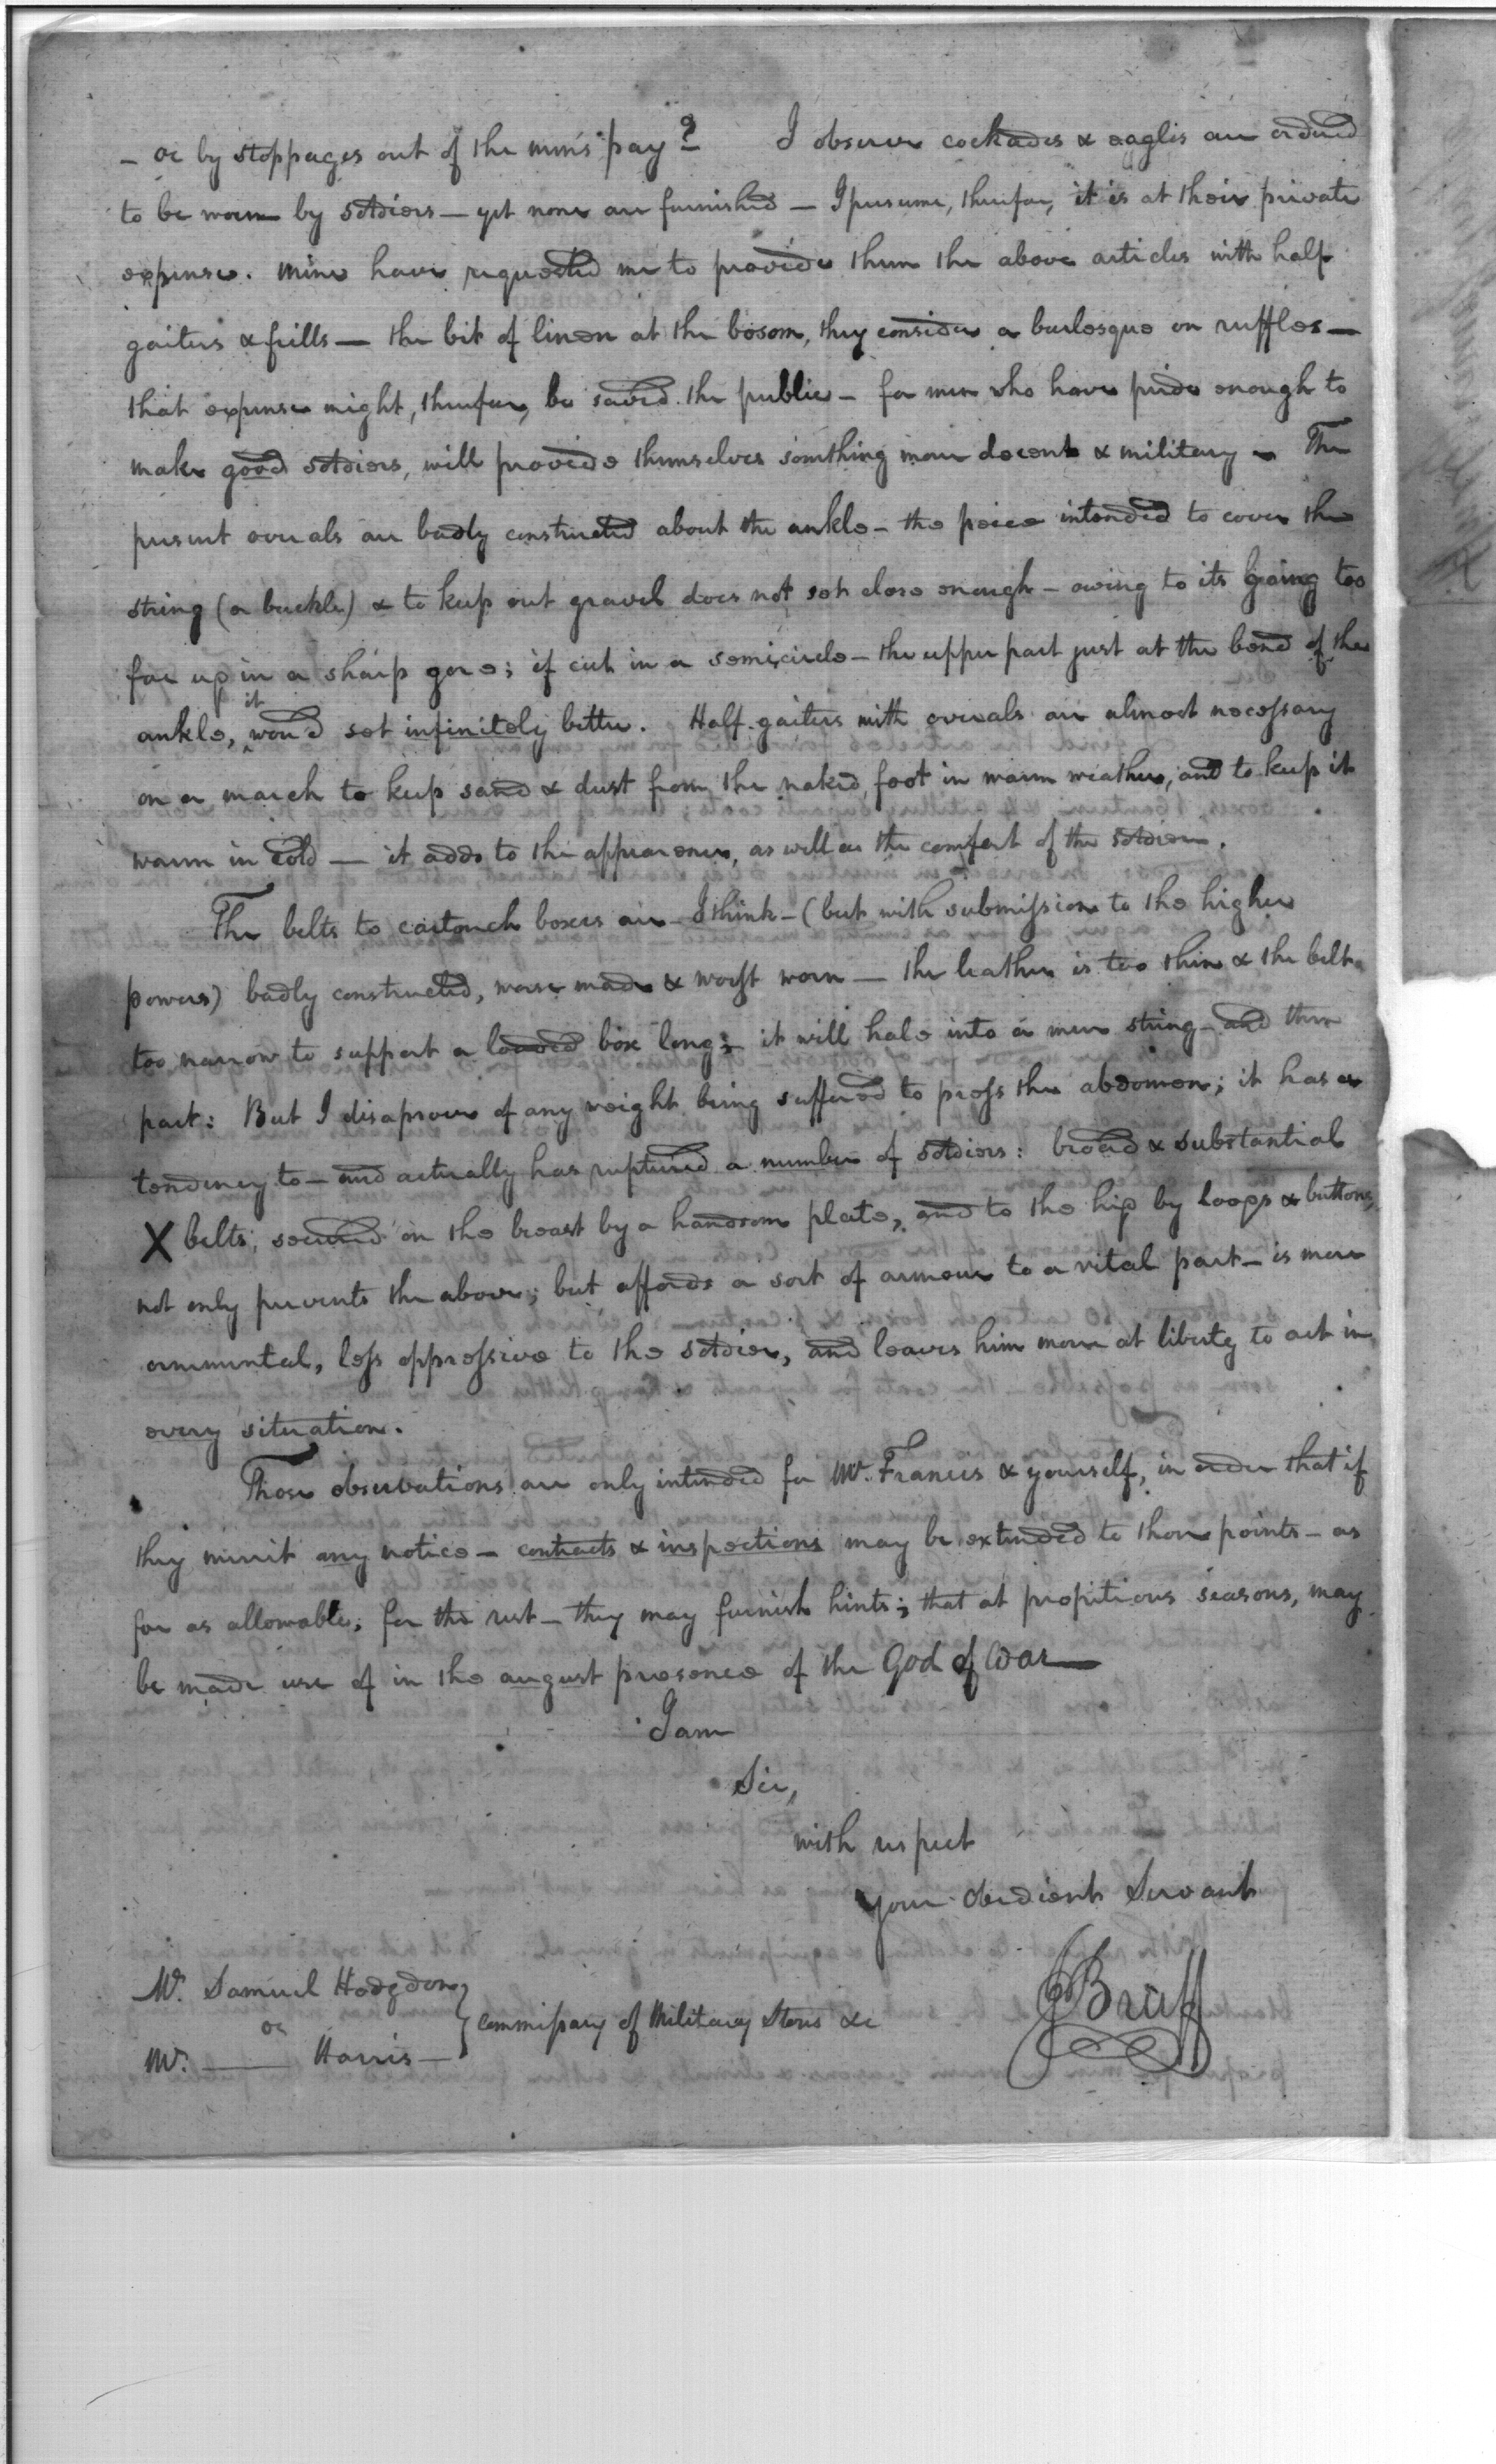 - or by stoppages out of the mens pay? I observe cockades & eagles are ordered
to be worn by soldiers — yet none are furnished — I presume, therefore, it is at their private
expense. Mine have requested me to provide them the above articles with half
gaiters & frills — the bit of linen at the bosom, they consider a burlesque on ruffles —
that expense might, therefore, be saved the public — for men who have pride enough to
make good soldiers, will provide themselves something more decent & military — The
present overals are badly constructed about the ankle — the peice intended to cover the
string (or buckle) & to keep out gravel does not set close enough — owing to its going too
far up in a sharp gore; if cut in a semicircle — the upper part just at the bend of the
ankle, it wou'd set infinitely better. Half-gaiters with overals are almost necessary
on a march to keep sand & dust from the naked foot in warm weather, and to keep it
warm in cold — it adds to the appearence, as well as the comfort of the soldier.
The belts to cartouch boxes are — I think — (but with submission to the higher
powers) badly constructed, worse made & worst worn — the leather is too thin & the belt
too narrow to support a loaded box long; it will hale into a mere string — and then
part: But I disaprove of any weight being suffered to press the abdomen; it has a
tendency to — and actually has ruptured a number of soldiers: broad & substantial
X belts; secured on the breast by a handsom plate, and to the hip by loops & buttons,
not only prevents the above; but affords a sort of armour to a vital part — is more
ornamental, less oppressive to the soldier, and leaves him more at liberty to act in
every situation.
Those observations are only intended for Mr. Francis & yourself, in order that if
they merit any notice — contracts & inspections may be extended to those points — as
far as allowable; for the rest — they may furnish hints; that at propitious seasons, may
be made use of in the august presence of the God of War —
I am
Sir,
with respect
your obedient Servant
JBruff
Mr. Samuel Hodgdon
or
Mr. —— Harris —
Commissary of Military Stores &c